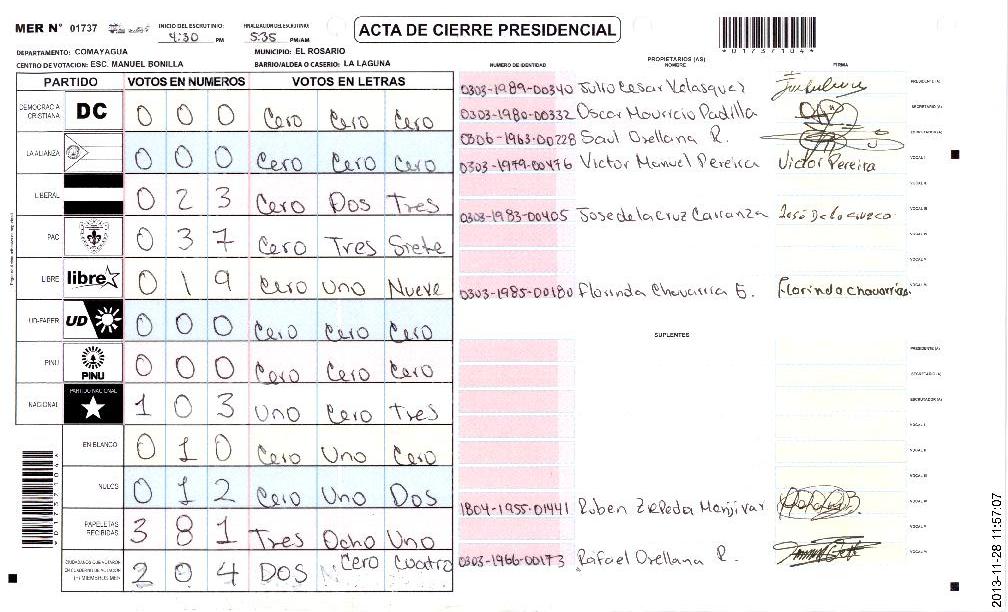 MER N° 01737 INICIO DEL ESCRUTINIO: 4:30 PM FINALIZACION DEL ESCRUTINIO: 5:35 PM/AM
ACTA DE CIERRE PRESIDENCIAL
*01737104*
DEPARTAMENTO: COMAYAGUA MUNICIPIO: EL ROSARIO
CENTRO DE VOTACION: ESC. MANUEL BONILLA BARRIO/ALDEA O CASERIO: LA LAGUNA
PARTIDO VOTOS EN NUMEROS VOTOS EN LETRAS
DEMOCRACIA CRISTIANA DC 0 0 0 Cero Cero Cero
LA ALIANZA 0 0 0 Cero Cero Cero
LIBERAL 0 2 3 Cero Dos Tres
PAC 0 3 7 Cero Tres Siete
LIBRE libre 0 1 9 Cero Uno Nueve
UD-FAPER UD 0 0 0 Cero Cero Cero
PINU PINU 0 0 0 Cero Cero Cero
NACIONAL PARTIDO NACIONAL 1 0 3 Uno Cero Tres
EN BLANCO 0 1 0 Cero Uno Cero
NULOS 0 1 2 Cero Uno Dos
PAPELETAS RECIBIDAS 3 8 1 Tres Ocho Uno
2 0 4 Dos Cero Cuatro
*01737104*
PROPIETARIOS (AS)
NUMERO DE IDENTIDAD NOMBRE FIRMA
0303-1989-00340 Julio Cesar Velasquez PRESIDENTE (A)
0303-1980-00332 Oscar Mauricio Padilla SECRETARIO (A)
0306-1963-00228 Saul Orellana R. ESCRUTADOR (A)
0303-1979-00476 Victor Manuel Pereira Victor Pereira VOCAL I
VOCAL II
0303-1983-00405 Jose de la Cruz Carranza VOCAL III
VOCAL IV
VOCAL V
0303-1985-00180 Florinda Chavarria E. Florinda Chavarrias VOCAL VI
SUPLENTES
PRESIDENTE (A)
SECRETARIO (A)
ESCRUTADOR (A)
VOCAL I
VOCAL II
VOCAL III
1804-1955-01441 Ruben Zepeda Menjivar VOCAL IV
VOCAL V
0303-1966-00173 Rafael Orellana R. VOCAL VI
2013-11-28 11:57:07